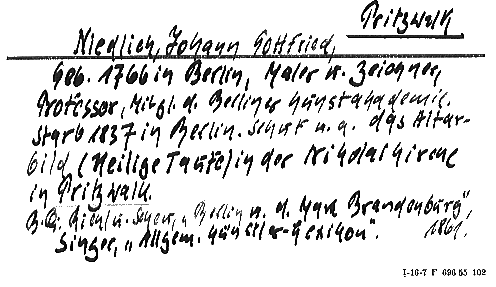 Pritzwalk
Niedlich, Johann Gottfried,
Geb. 1766 in Berlin, Maler u. Zeichner,
Professor, Mitgl. d. Berliner Kunstakademie.
Starb 1837 in Berlin. Schuf u. a. das Altar-
bild (Heilige Taufe) in der Nikolaikirche
in Pritzwalk.
B. Q. u. „Berlin u. d. Mark Brandenburg",
Singer, „Allgem. Künstler-Lexikon". 1861.
I-16-7 F 696 55 102